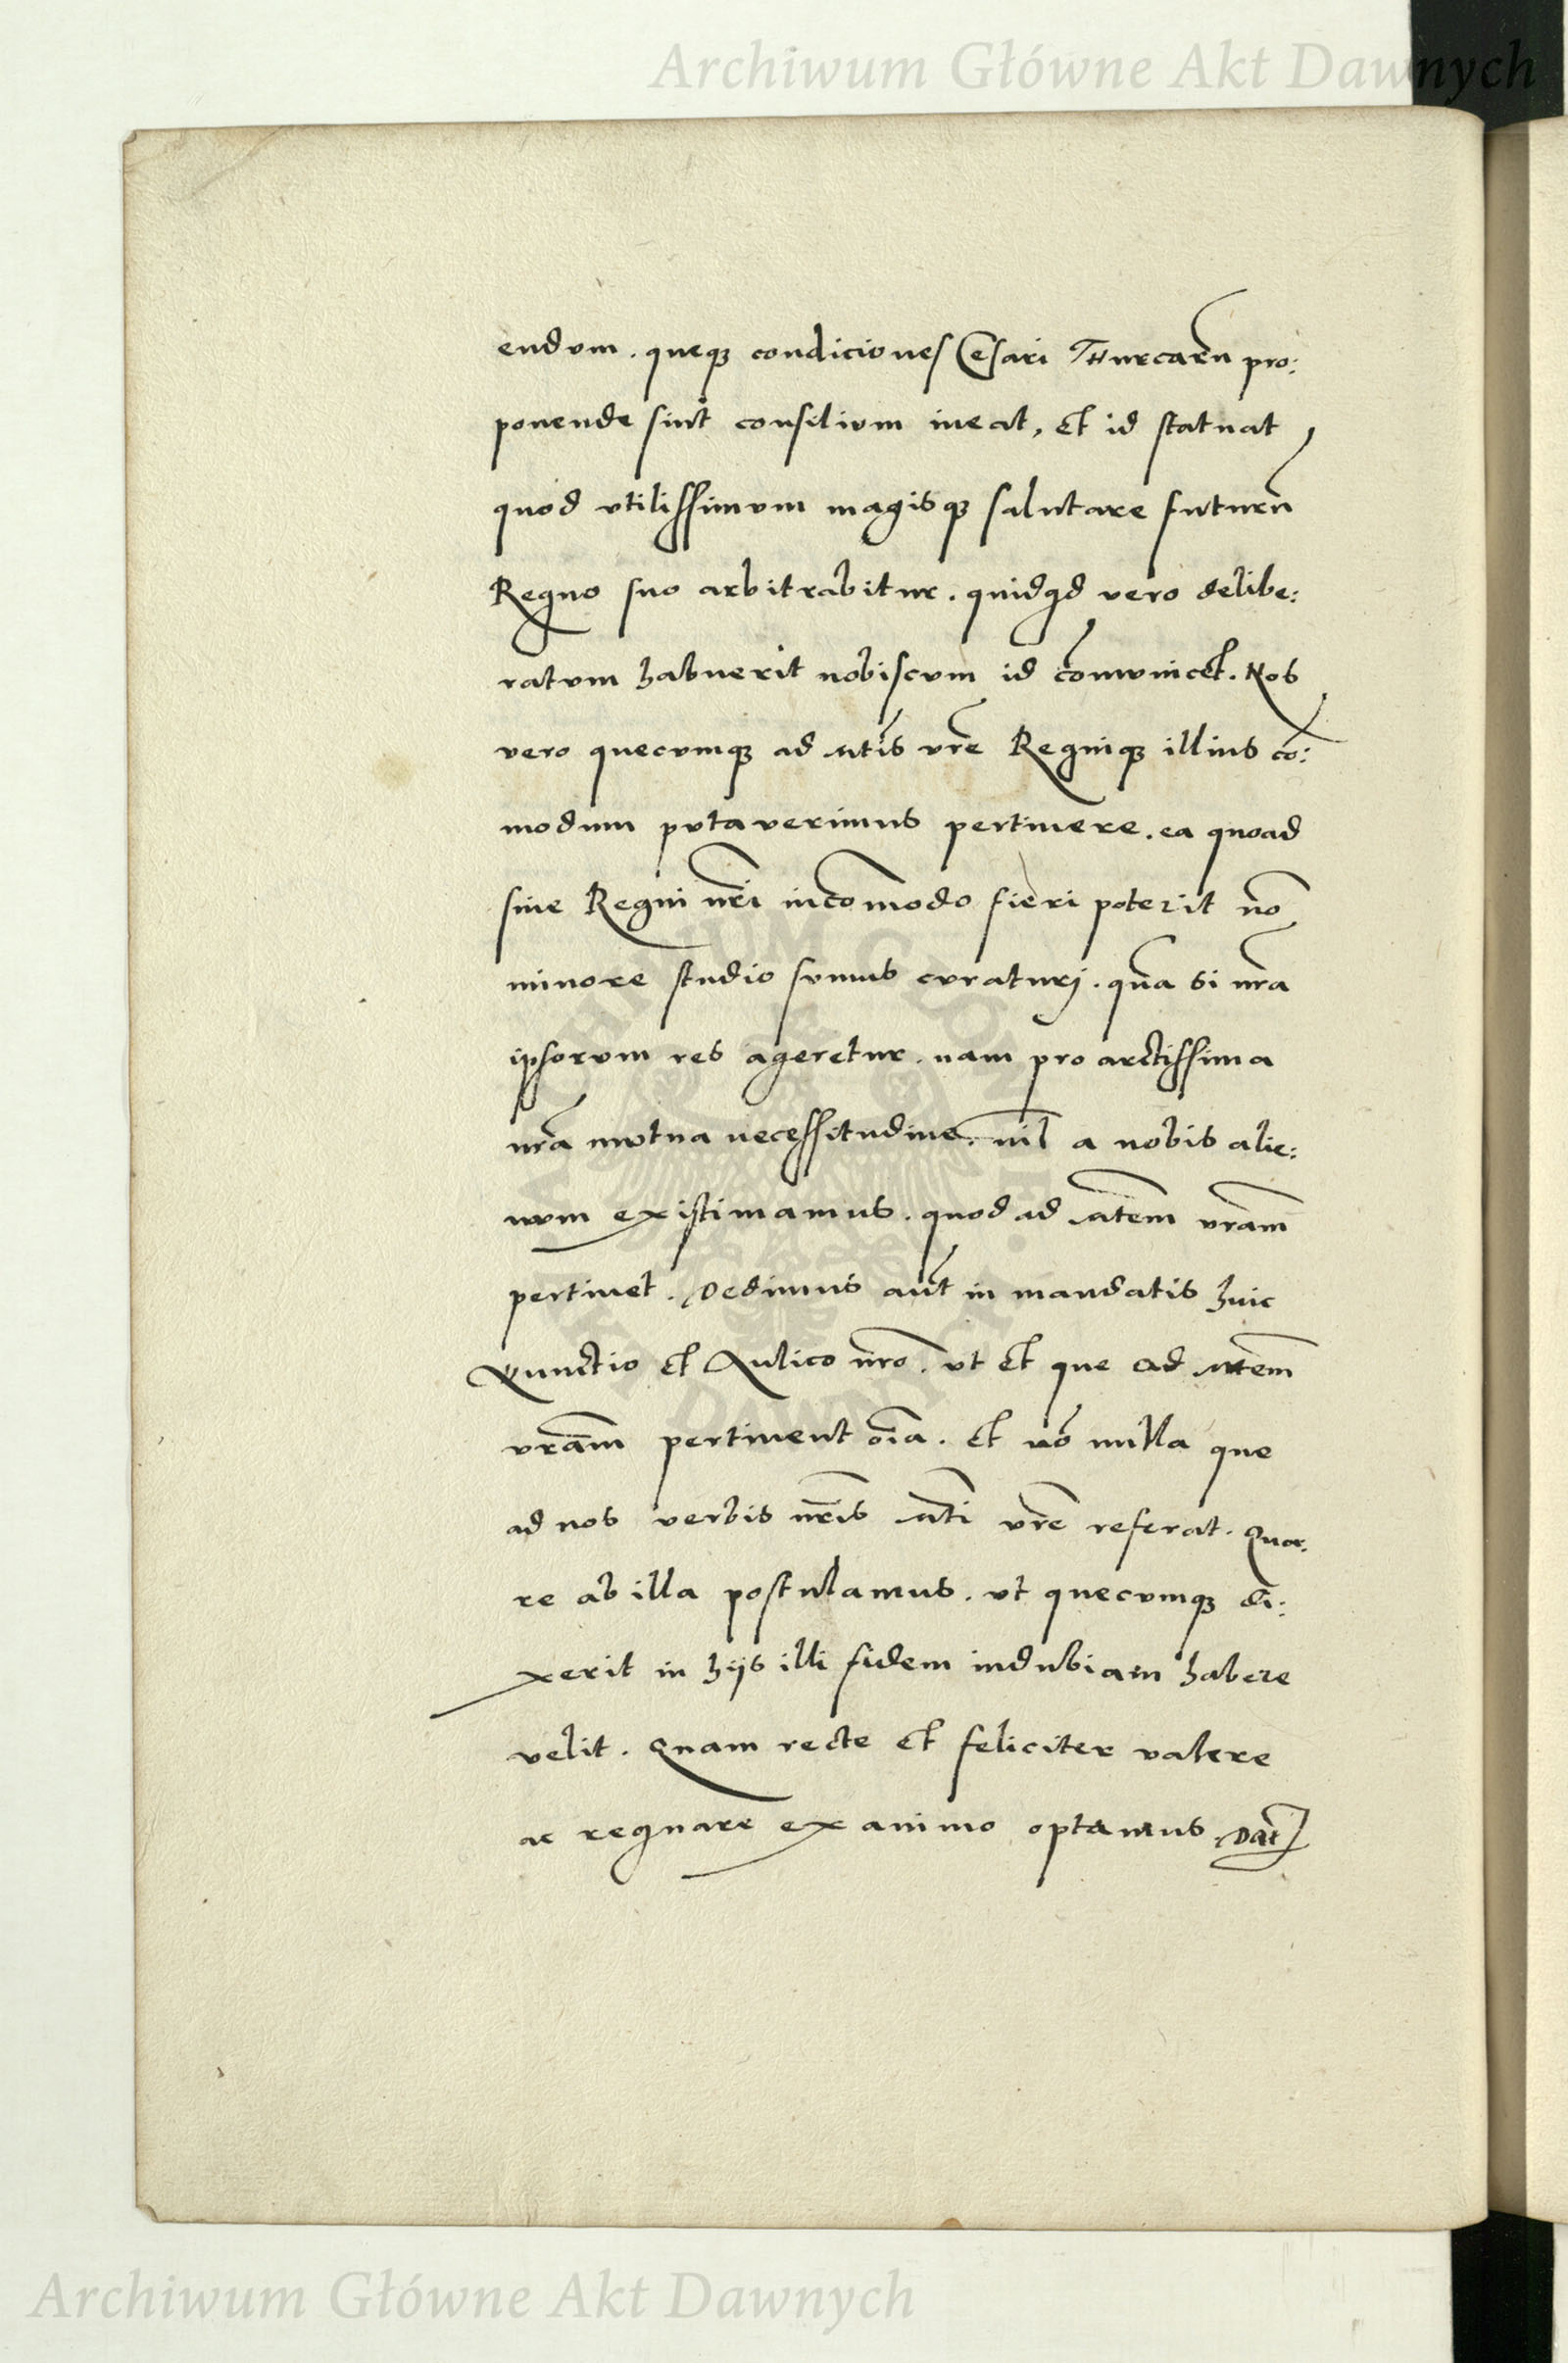 Archiwum Główne Akt Dawnych
endum. queqꝫ condiciones Cesari Thurcarũ pro:
ponende sint consilium ineat, et id statuat
quod utilissimum magisqꝫ salutare futurũ
Regno suo arbitrabitur. quidqd vero delibe:
ratum habuerit nobiscum id cõmunicet. Nos
vero quecumqꝫ ad Mtis vrẽ Regniqꝫ illius cõ:
modum putaverimus pertinere. ea quoad
sine Regni nrĩ incõmodo fieri poterit nõ
minore studio sumus curaturj. quã si nrã
ipsorum res ageretur. nam pro arctissima
nrã mutua necessitudine. nil a nobis alie:
num existimamus. quod ad Mtem vrãm
pertinet. Dedimus aut in mandatis huic
Nunctio et Aulico nrõ. ut et que ad Mtem
vrãm pertinent oĩa. et nõ nulla que
ad nos verbis nrĩs Mti vrẽ referat. Qua:
re ab illa postulamus. ut quecumqꝫ di:
xerit in hijs illi fidem indubiam habere
velit. Quam recte et feliciter valere
ac regnare ex animo optamus Dat
Archiwum Główne Akt Dawnych